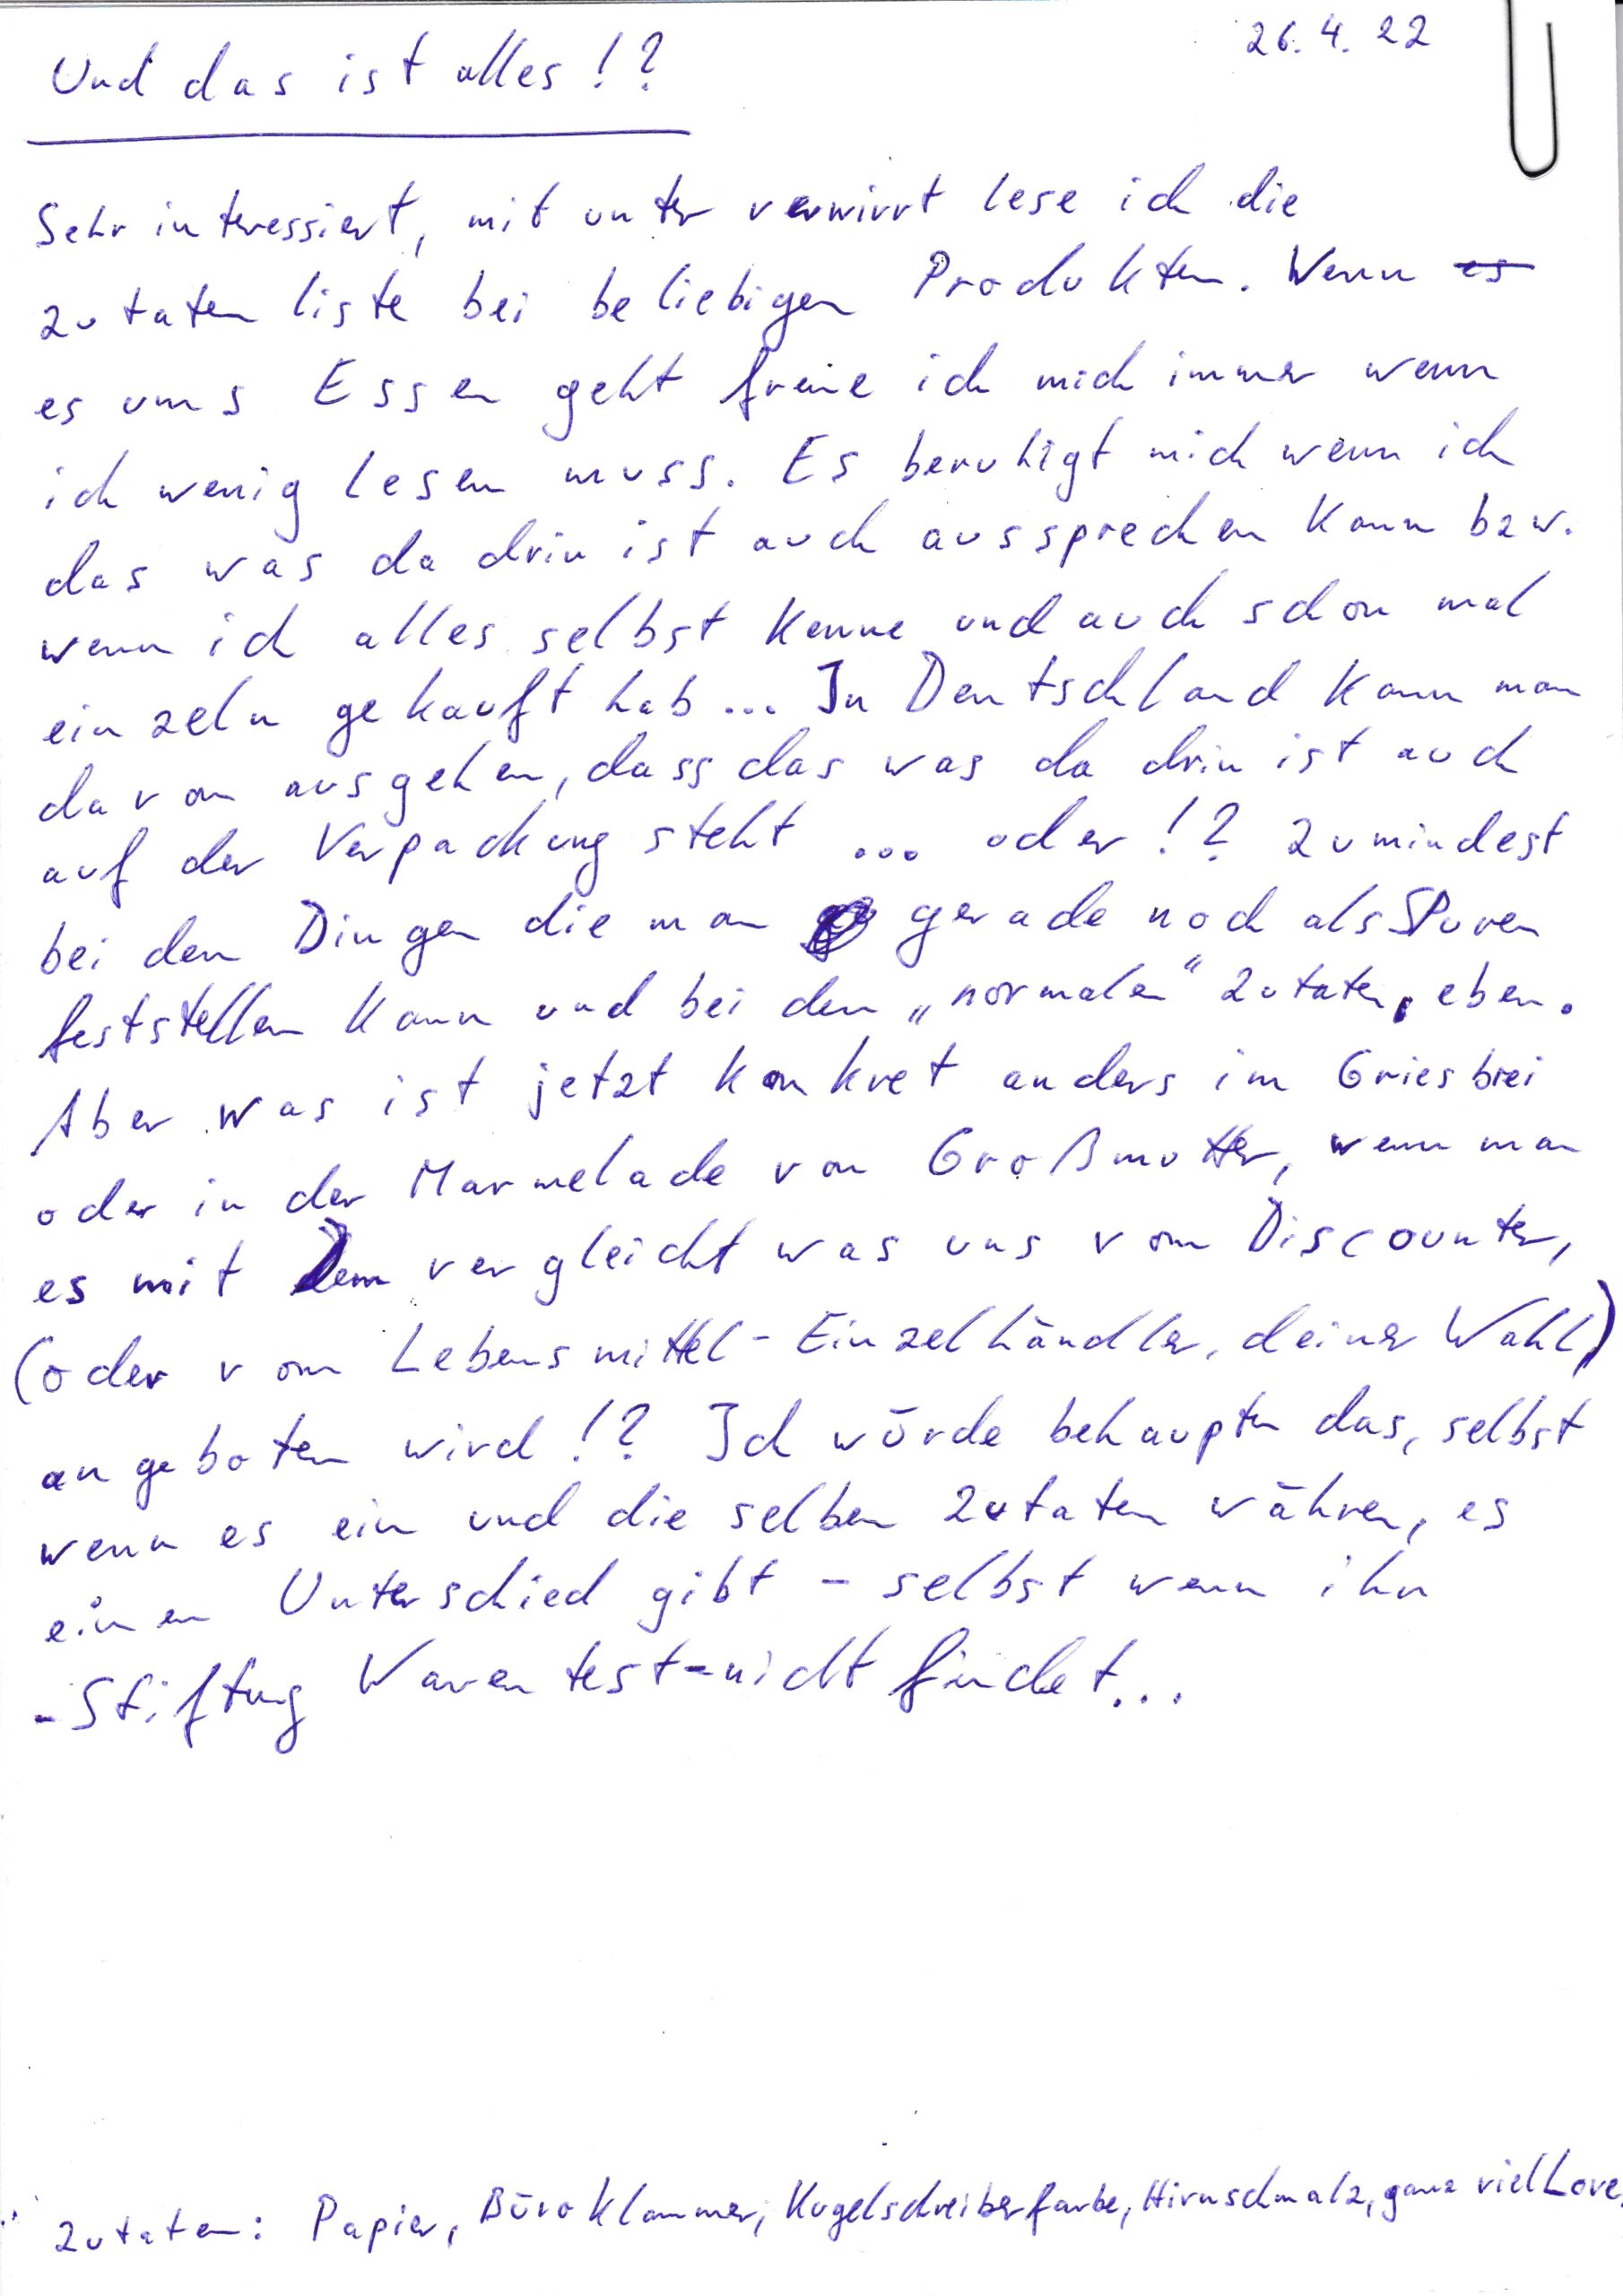 26.4.22
Und das ist alles!?
Sehr interessiert, mit unter verwirrt lese ich die
Zutatenliste bei beliebigen Produkten. Wenn es
es ums Essen geht freue ich mich immer wenn
ich wenig lesen muss. Es beruhigt mich wenn ich
das was da drin ist auch aussprechen kann bzw.
wenn ich alles selbst kenne und auch schon mal
einzeln gekauft hab... In Deutschland kann man
davon ausgehen, dass das was da drin ist auch
auf der Verpackung steht ... oder!? Zumindest
bei den Dingen die man gerade noch als SPuren
feststellen kann und bei den „normalen" Zutaten, eben.
Aber was ist jetzt konkret anders im Griesbrei
oder in der Marmelade von Großmutter, wenn man
es mit Dem vergleicht was uns vom Discounter,
(oder vom Lebensmittel-Einzelhändler, deiner Wahl)
angeboten wird!? Ich würde behaupten das, selbst
wenn es ein und die selben Zutaten währen, es
einen Unterschied gibt - selbst wenn ihn
-Stiftung Warentest-nicht findet...
Zutaten: Papier, Büroklammer, Kugelschreiberfarbe, Hirnschmalz, ganz viel Love.